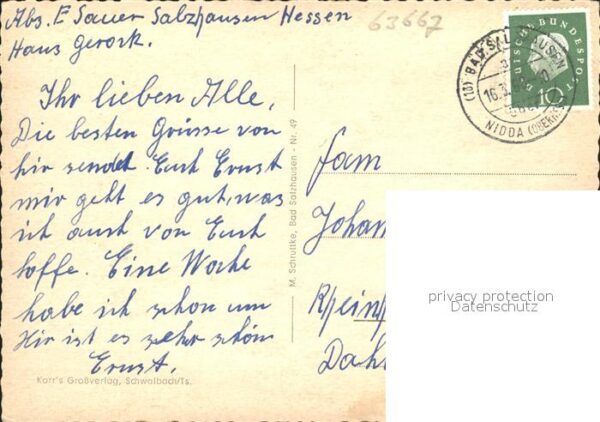 Abs. E Sauer Salzhausen Hessen
Haus Gerock.
63667
Ihr lieben Alle,
Die besten Grüsse von
hir sendet Euch Ernst
mir geht es gut, was
ich auch von Euch
hoffe. Eine Woche
habe ich schon um
Hir ist es sehr schön
Ernst.
Karr's Großverlag, Schwalbach/Ts.
M. Schruttke, Bad Salzhausen - Nr. 49
DEUTSCHE BUNDESPOST
10
(16) BAD SALZHAUSEN
16.3.
NIDDA (OBERH
Fam
Johan
Rheinp
Dah
privacy protection
Datenschutz